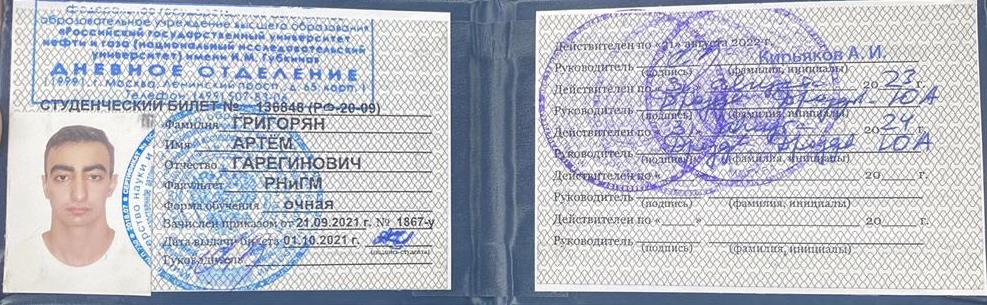 образовательное учреждение высшего образования
«Российский государственный университет
нефти и газа (национальный исследовательский
университет) имени И.М. Губкина»
ДНЕВНОЕ ОТДЕЛЕНИЕ
г. Москва, Ленинский просп., д. 65, корп. 1
СТУДЕНЧЕСКИЙ БИЛЕТ № 136648 (РФ-20-09)
Фамилия ГРИГОРЯН
Имя АРТЁМ
Отчество ГАРЕГИНОВИЧ
Факультет РНиГМ
Форма обучения очная
Зачислен приказом от 21.09.2021 г. № 1867-у
Дата выдачи билета 01.10.2021 г.
(подпись студента)
Руководитель
Действителен по «31» августа 2022 г.
Кирьяков А. И.
Руководитель
(подпись) (фамилия, инициалы)
Действителен по «31 20 23
Руководитель Ю А
(подпись) (фамилия, инициалы)
Действителен по «31 20 24
Руководитель Ю А
(подпись) (фамилия, инициалы)
Действителен по « 20 г.
Руководитель
(подпись) (фамилия, инициалы)
Действителен по « » 20 г.
Руководитель
(подпись) (фамилия, инициалы)